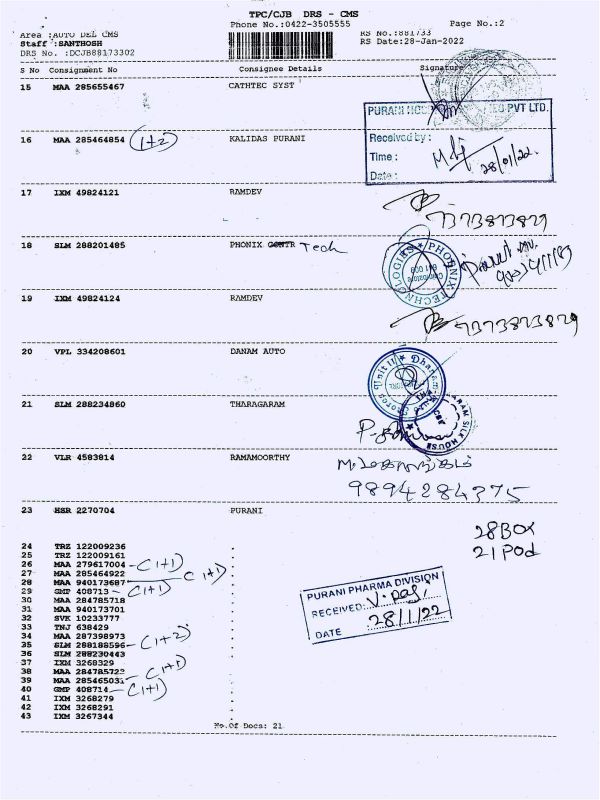 TPC/CJB DRS - CMS
Phone No.:0422-3505555
Page No.:2
Area :AUTO DEL CMS
RS No.:881733
Staff :SANTHOSH
RS Date:28-Jan-2022
DRS No. :DCJB88173302
S No Consignment No Consignee Details Signature
15 MAA 285655467 CATHTEC SYST
PVT LTD.
16 MAA 285464854 (1+2) KALIDAS PURANI
Received by :
Time :
28/01/22.
Date :
17 IXM 49824121 RAMDEV
18 SLM 288201485 PHONIX CONTR Tech
PHOENIX TECHNOLOGIES
Coimbatore
641 009
19 IXM 49824124 RAMDEV
20 VPL 334208601 DANAM AUTO
21 SLM 288234860 THARAGARAM
SILK HOUSE
22 VLR 4583814 RAMAMOORTHY
9894284375
23 HSR 2270704 PURANI
28 BOX
21 Pod
24 TRZ 122009236
25 TRZ 122009161
26 MAA 279617004 - (1+1)
27 MAA 285464922
28 MAA 940173687 (1+1)
29 GMP 408713 - (1+1)
30 MAA 284785718
31 MAA 940173701
32 SVK 10233777
33 TNJ 638429
34 MAA 287398973
35 SLM 288188596 - (1+2)
36 SLM 288230443
37 IXM 3268329
38 MAA 284785723 - (1+1)
39 MAA 285465031
40 GMP 408714 - (1+1)
41 IXM 3268279
42 IXM 3268291
43 IXM 3267344
PURANI PHARMA DIVISION
RECEIVED:
DATE 28/1/22
No.Of Docs: 21